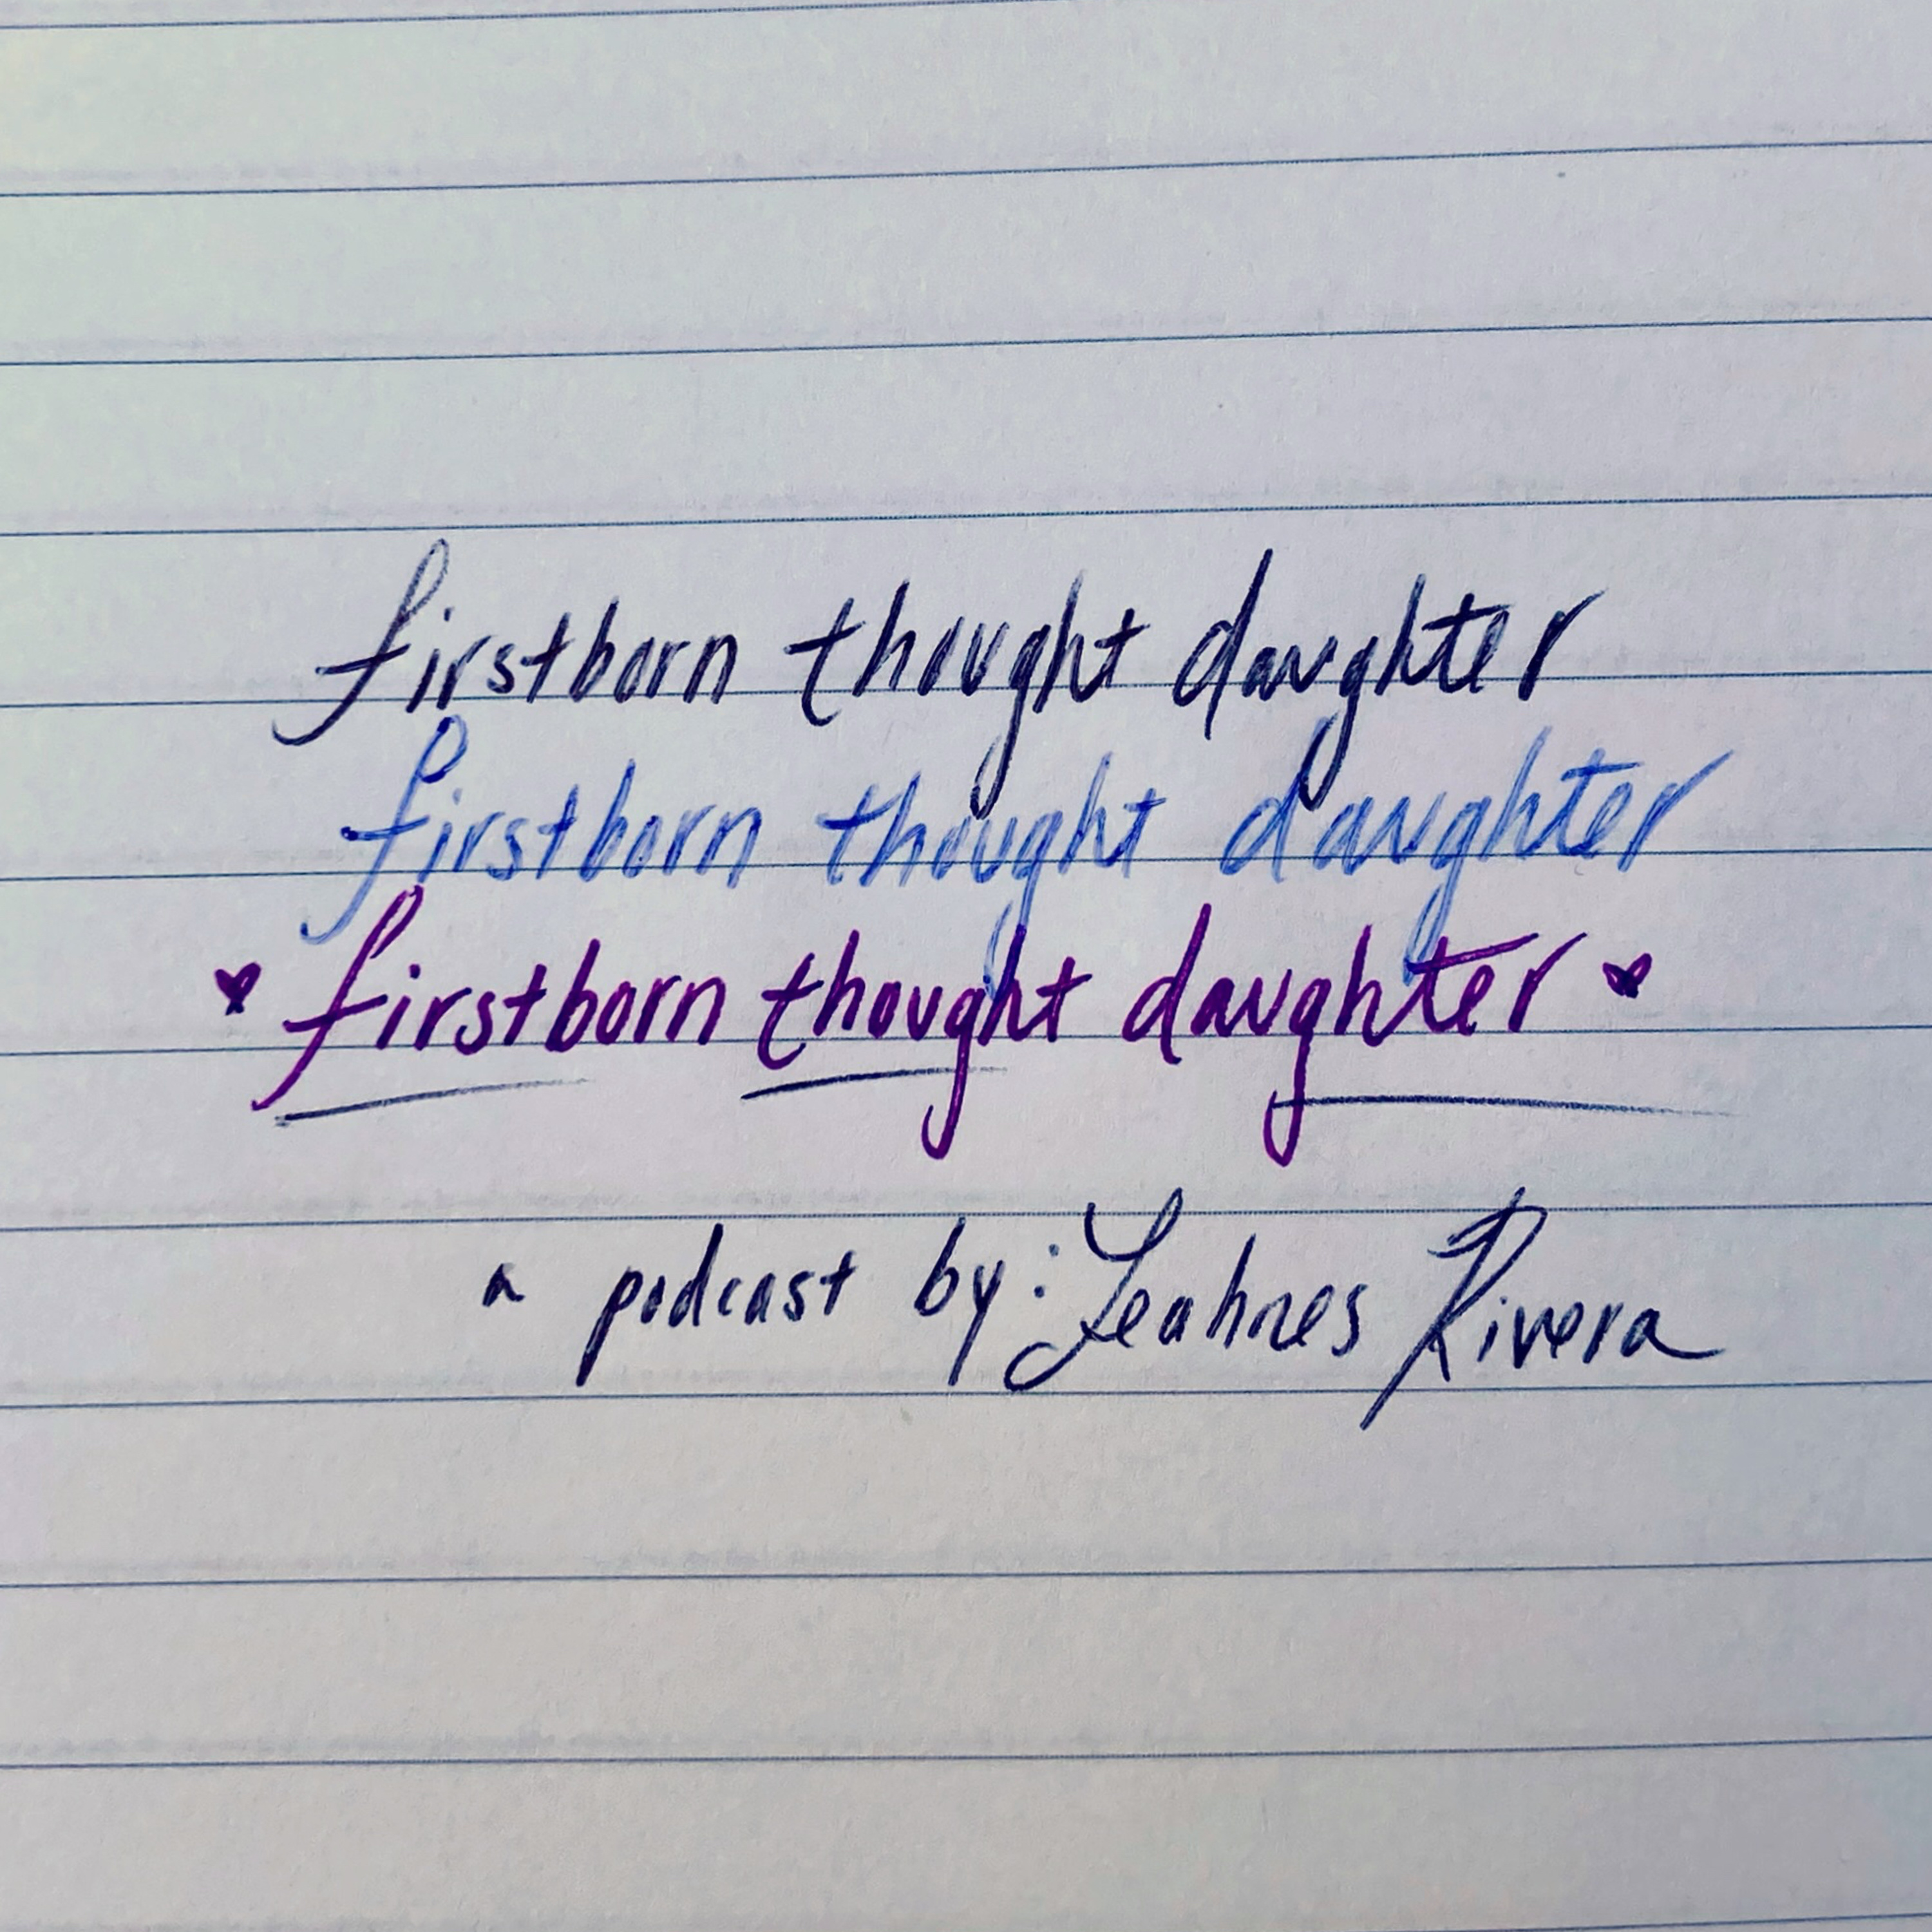 firstborn thought daughter
firstborn thought daughter
♥ firstborn thought daughter ♥
a podcast by: Leahnes Rivera